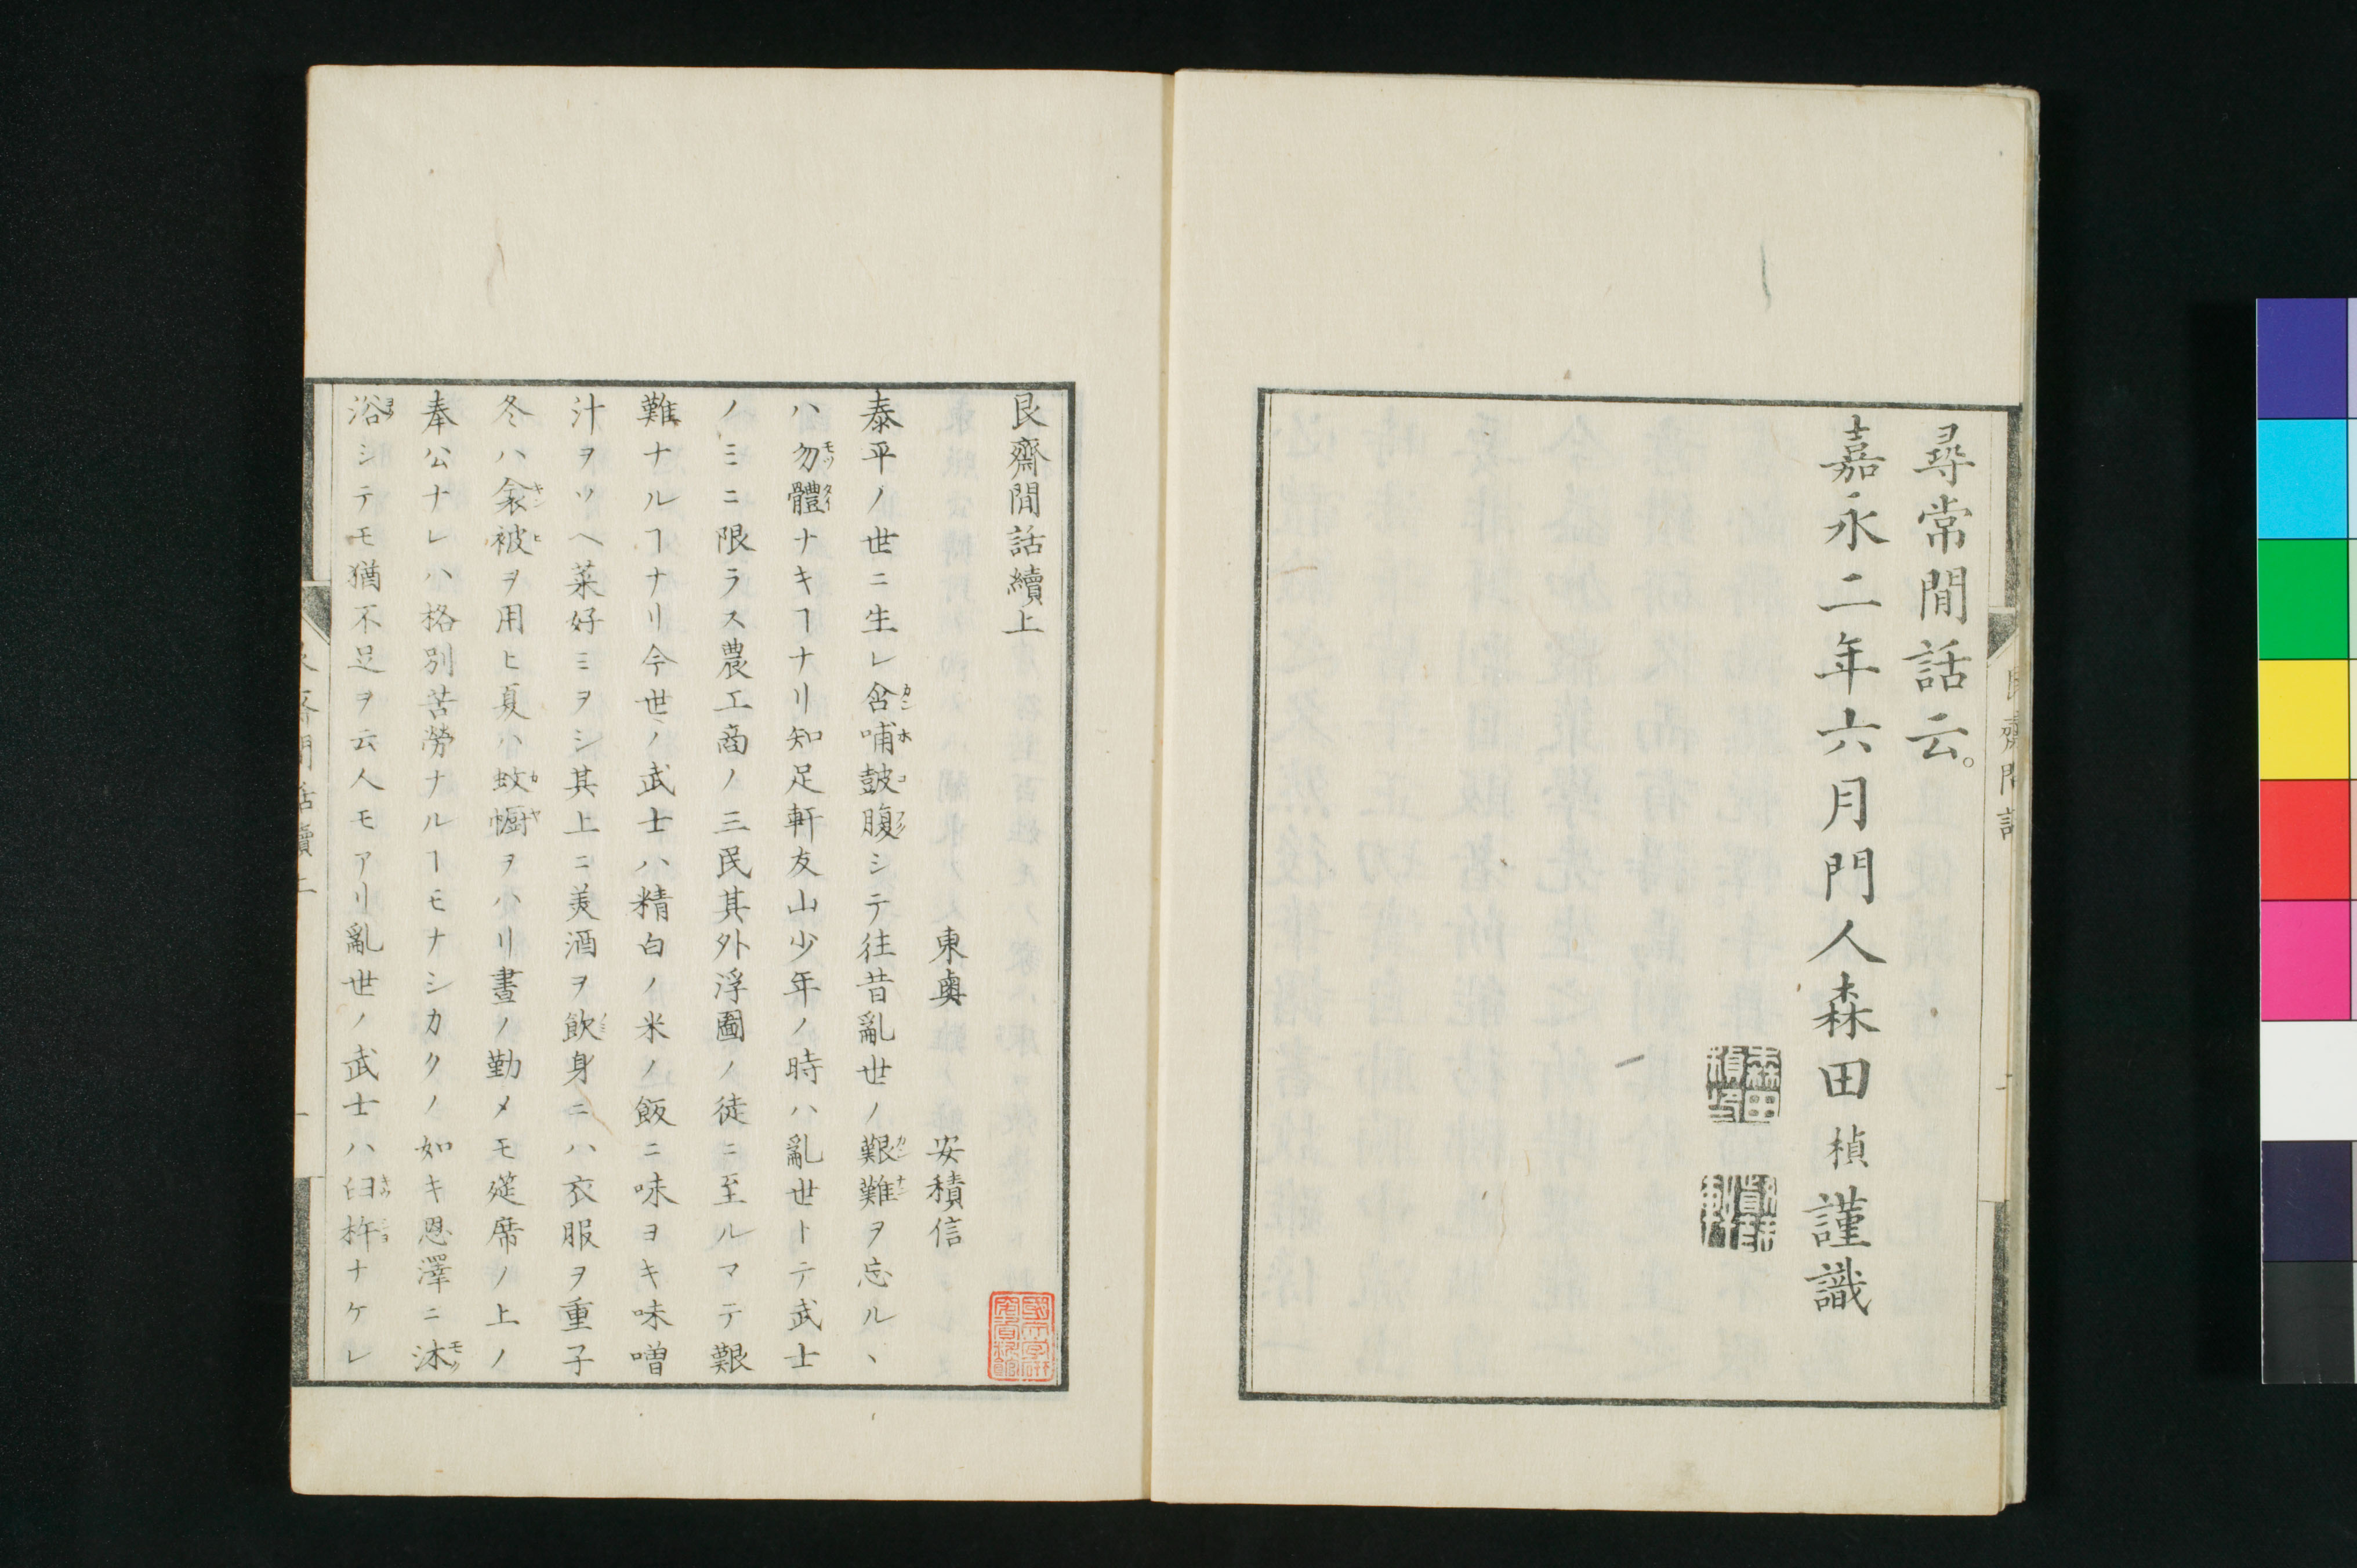 尋常閒話云。
嘉永二年六月門人森田楨謹識
艮齋閒話續上
東奥　安積信
泰平ノ世ニ生レ含哺鼓腹シテ往昔亂世ノ艱難ヲ忘ルヽ
ハ勿體ナキヿナリ知足軒友山少年ノ時ハ亂世トテ武士
ノミニ限ラス農工商ノ三民其外浮圖ノ徒ニ至ルマテ艱
難ナルヿナリ今世ノ武士ハ精白ノ米ノ飯ニ味ヨキ味噌
汁ヲソヘ菜好ミヲシ其上ニ美酒ヲ飲身ニハ衣服ヲ重子
冬ハ衾被ヲ用ヒ夏ハ蚊幮ヲハリ晝ノ勤メモ筵席ノ上ノ
奉公ナレハ格別苦勞ナルヿモナシカクノ如キ恩澤ニ沐
浴シテモ猶不足ヲ云人モアリ亂世ノ武士ハ臼杵ナケレ